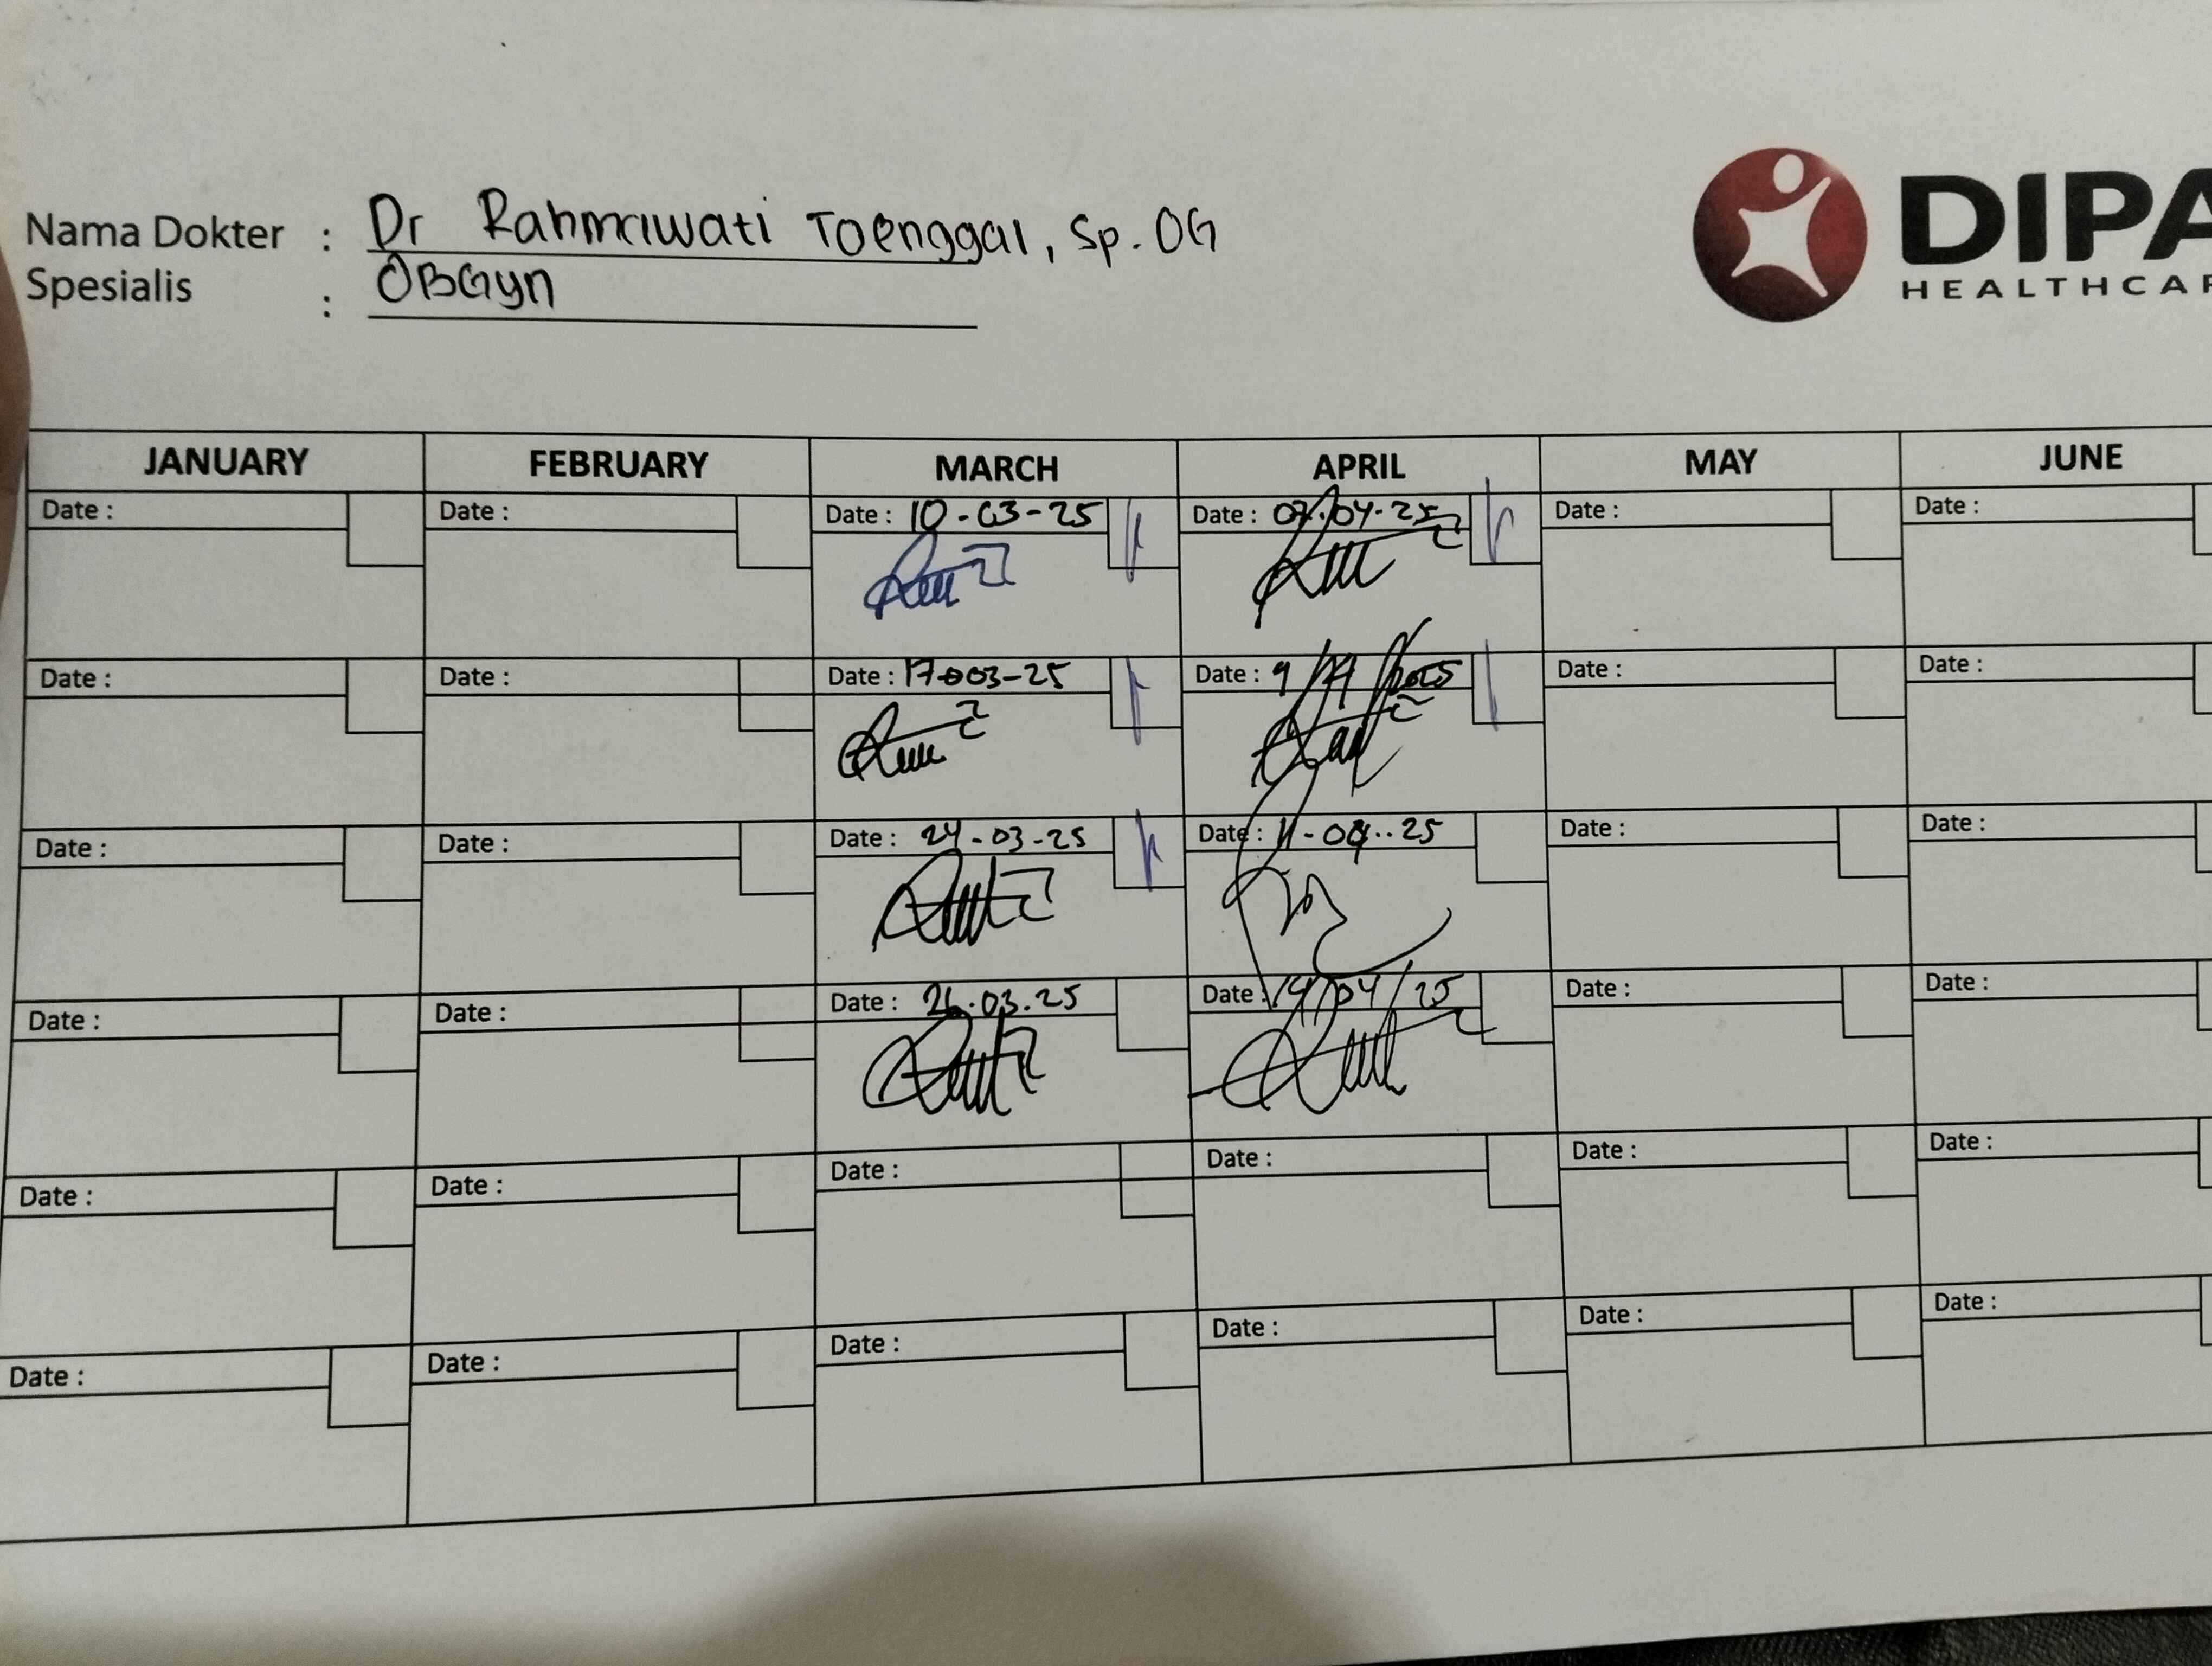 Nama Dokter : Dr Rahmawati Toenggal, Sp. OG
Spesialis : OBGyn
DIPA
HEALTHCAR
JANUARY FEBRUARY MARCH APRIL MAY JUNE
Date : Date : Date : 10-03-25 Date : 07-04-25 Date : Date :
Date : Date : Date : 17-03-25 Date : 9/ /2025 Date : Date :
Date : Date : Date : 24-03-25 Date : 11-04-25 Date : Date :
Date : Date : Date : 26.03.25 Date : /04/25 Date : Date :
Date : Date : Date : Date : Date : Date :
Date : Date : Date : Date : Date : Date :